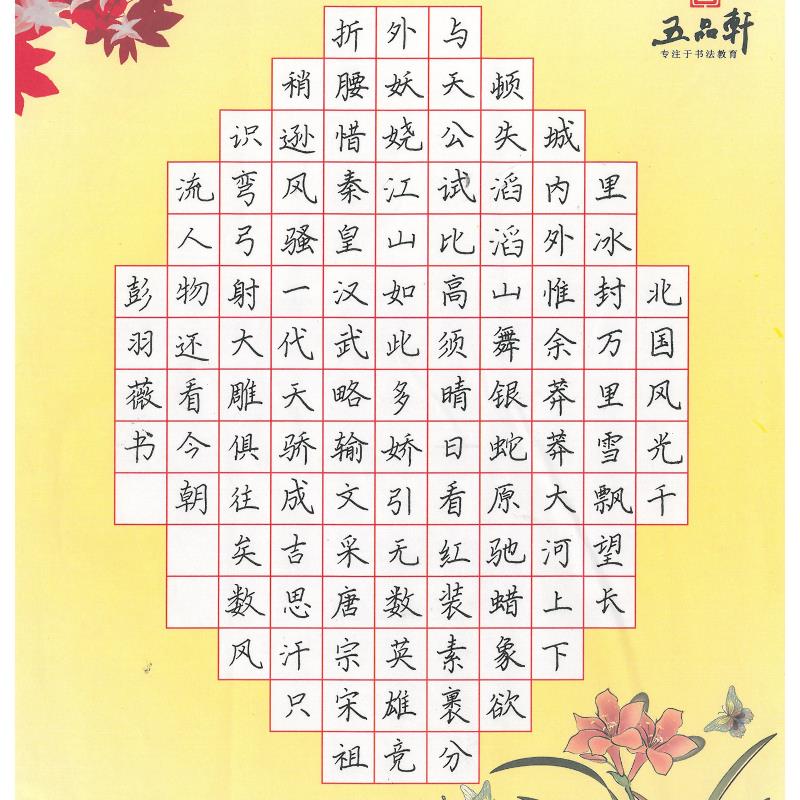 五品軒
专注于书法教育
北国风光千
里冰封万里雪飘望长
城内外惟余莽莽大河上下
顿失滔滔山舞银蛇原驰蜡象欲
与天公试比高须晴日看红装素裹分
外妖娆江山如此多娇引无数英雄竞
折腰惜秦皇汉武略输文采唐宗宋祖
稍逊风骚一代天骄成吉思汗只
识弯弓射大雕俱往矣数风
流人物还看今朝
彭羽薇书